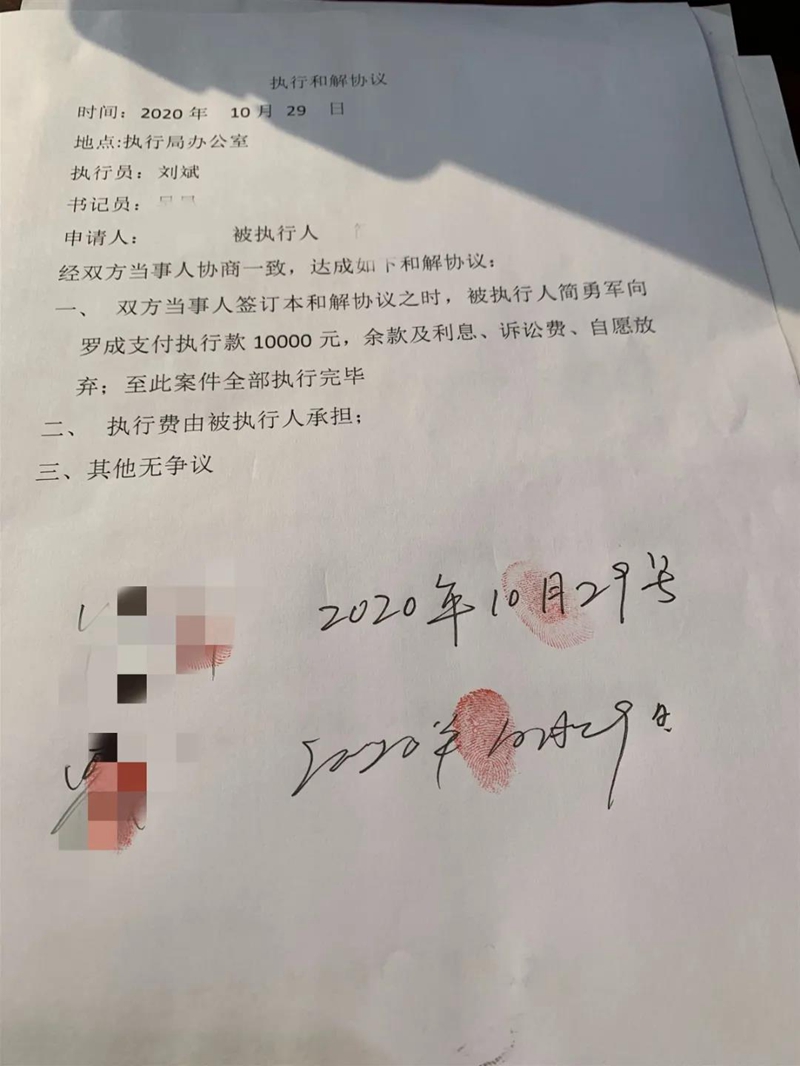 执行和解协议
时间：2020 年 10 月 29 日
地点:执行局办公室
执行员：刘斌
书记员：
申请人： 被执行人
经双方当事人协商一致，达成如下和解协议：
一、 双方当事人签订本和解协议之时，被执行人简勇军向
罗成支付执行款 10000 元，余款及利息、诉讼费、自愿放
弃；至此案件全部执行完毕
二、 执行费由被执行人承担；
三、其他无争议
2020年10月29号
2020年10月29日